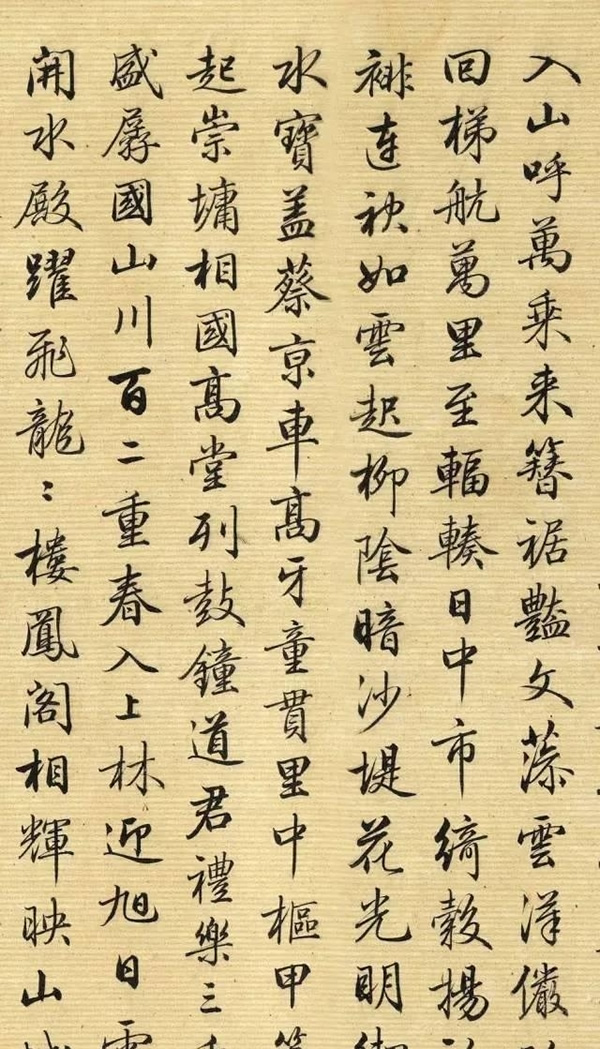 入山呼萬乘来簪裾豔文藻雲漢儼
回梯航萬里至輻輳日中市綺縠揚
連袂如雲起柳陰暗沙堤花光明
水寶盖蔡京車高牙童貫里中樞甲第
起崇墉相國高堂列鼓鐘道君禮樂三
盛孱國山川百二重春入上林迎旭日雲
開水殿躍飛龍〻樓鳳閣相輝映山